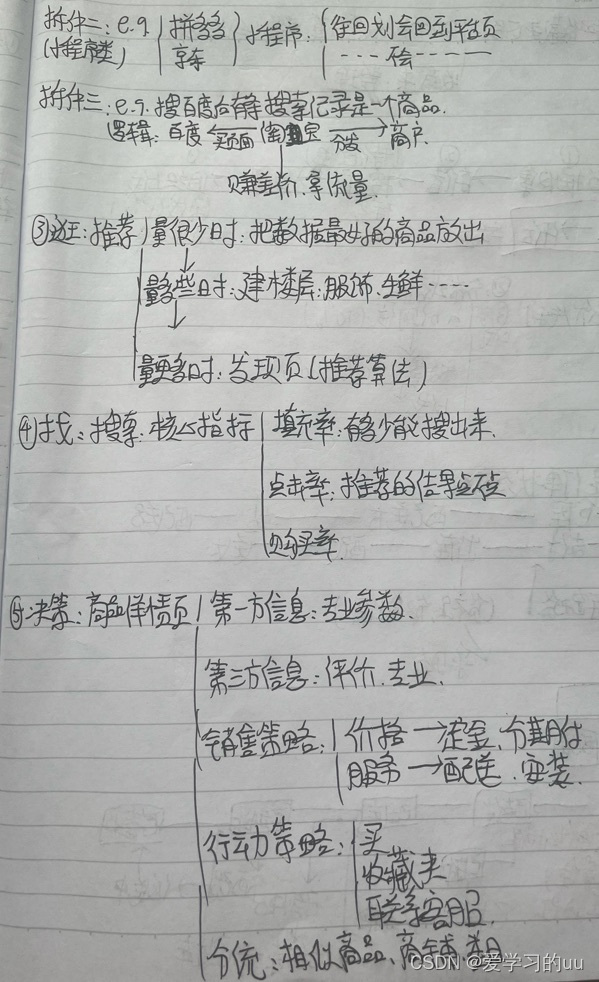 拆件二：e.g. 拼多多 小程序：往回划会回到平台页
(小程序类) 京东 ····不会————
拆件三：e.g. 搜百度后有条搜索记录是一个商品.
逻辑：百度 买页面 淘宝 → 分发 商户
赚差价、享流量.
③逛：推荐 量很少时：把数据最好的商品放出
量多些时：建楼层：服饰、生鲜····
量更多时：发现页（推荐算法）
④找：搜索：核心指标 填充率：有多少能搜出来.
点击率：推荐的结果点不点
购买率.
⑤决策：商品详情页 第一方信息：专业参数.
第三方信息：评价、专业.
销售策略： 价格→定金、分期付
服务→配送、安装.
行动策略： 买
收藏夹
联系客服.
分流：相似商品、商铺、类目
CSDN @爱学习的uu